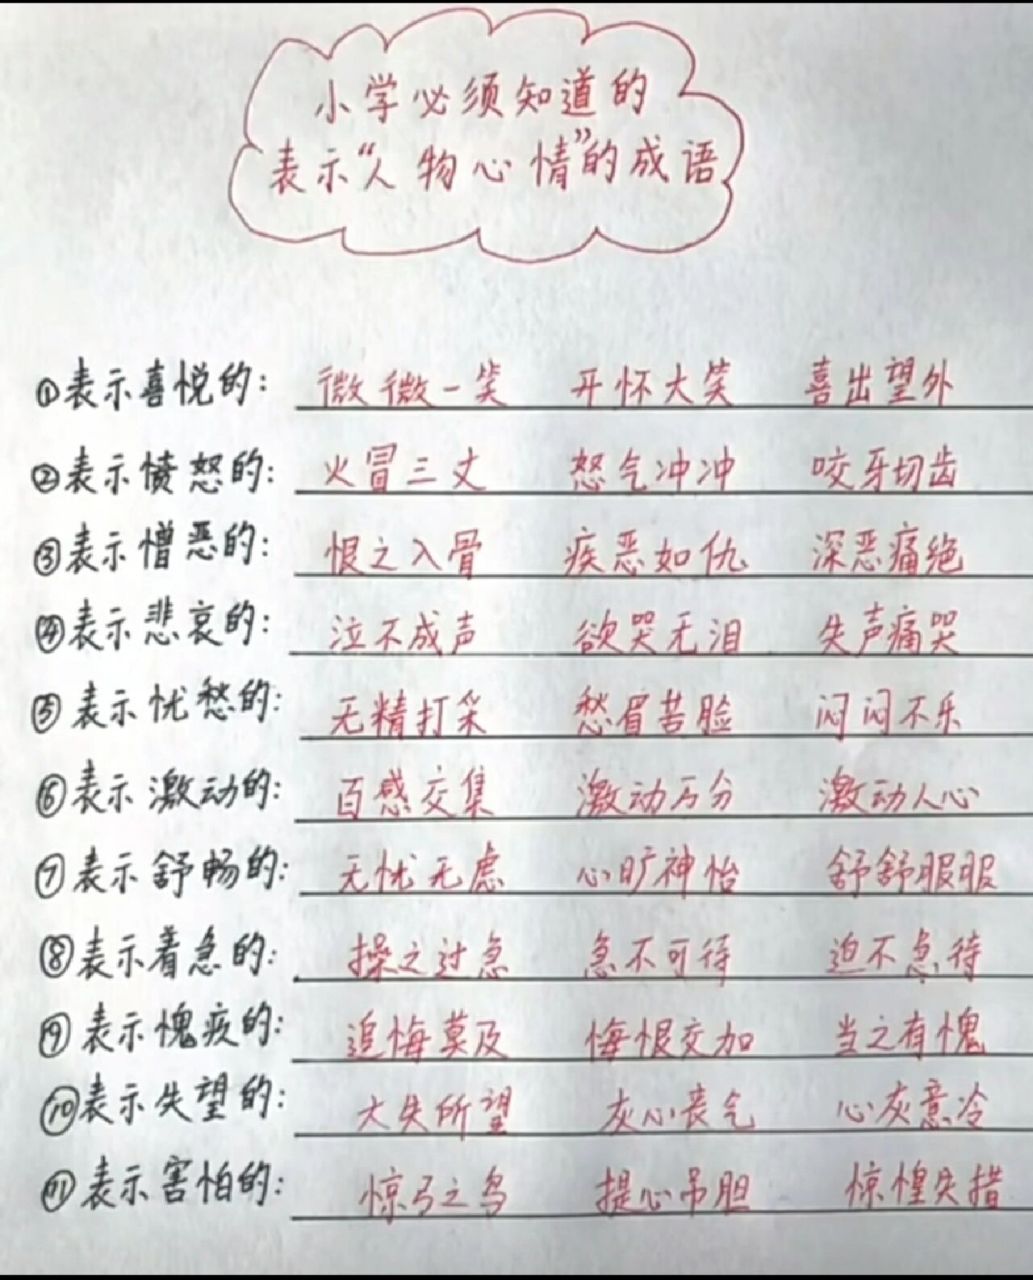 小学必须知道的
表示“人物心情”的成语
①表示喜悦的: 微微一笑 开怀大笑 喜出望外
②表示愤怒的: 火冒三丈 怒气冲冲 咬牙切齿
③表示憎恶的: 恨之入骨 疾恶如仇 深恶痛绝
④表示悲哀的: 泣不成声 欲哭无泪 失声痛哭
⑤表示忧愁的: 无精打采 愁眉苦脸 闷闷不乐
⑥表示激动的: 百感交集 激动万分 激动人心
⑦表示舒畅的: 无忧无虑 心旷神怡 舒舒服服
⑧表示着急的: 操之过急 急不可待 迫不急待
⑨表示愧疚的: 追悔莫及 悔恨交加 当之有愧
⑩表示失望的: 大失所望 灰心丧气 心灰意冷
⑪表示害怕的: 惊弓之鸟 提心吊胆 惊惶失措